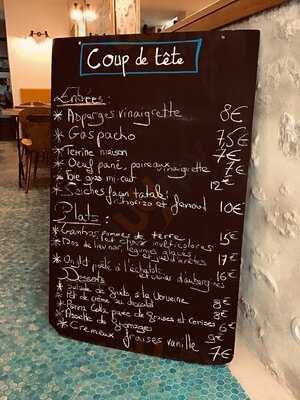 Coup de tête
Entrées :
* Asperges vinaigrette 8€
* Gaspacho 7,5€
* Terrine maison 7€
* Oeuf pané, poireaux vinaigrette 7€
* Foie gras mi-cuit 12€
* Seiches façon
chorizo et fenouil 10€
Plats :
* Gambas pommes de terre 15€
* Dos de
17€
* Onglet poêlé à l'échalote
et caviar d'aubergines 16€
Desserts
* Salade de fruits à la verveine 8€
* Pot de crème au chocolat 8€
* Panna Cotta purée de fraises et cerises 6€
* Assiette de fromages 9€
* Crémeux fraises vanille 7€